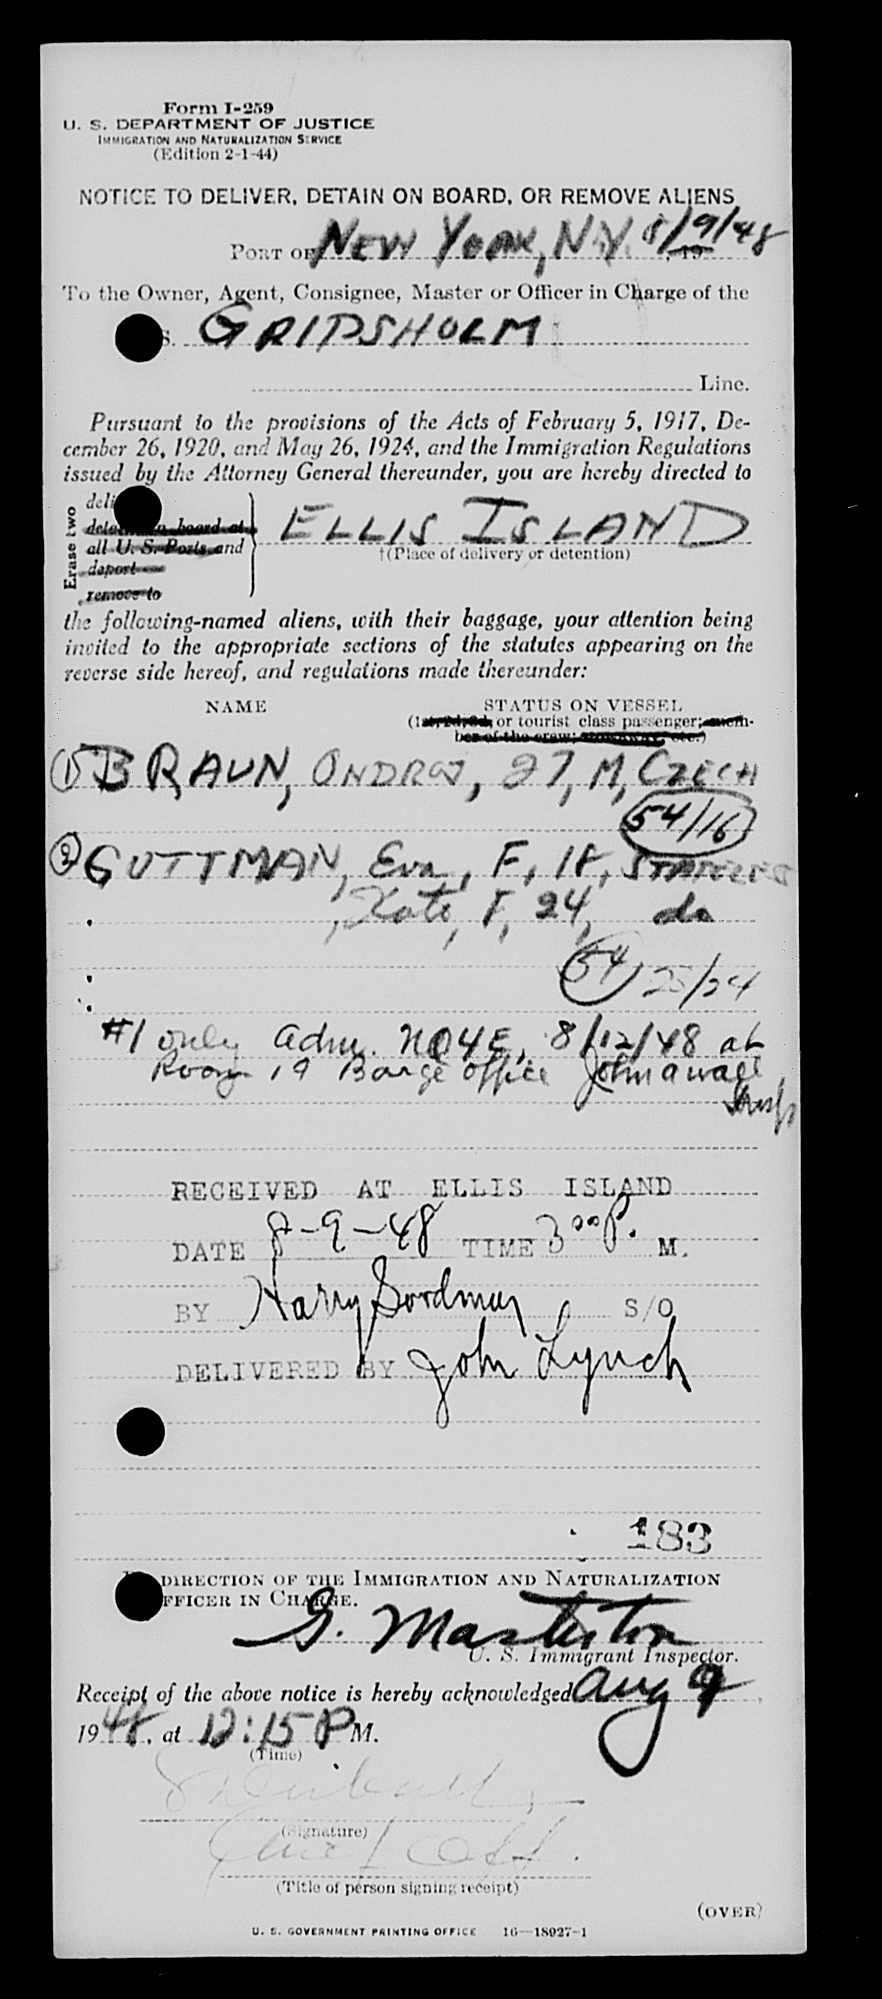 Form I-259
U. S. DEPARTMENT OF JUSTICE
IMMIGRATION AND NATURALIZATION SERVICE
(Edition 2-1-44)
NOTICE TO DELIVER, DETAIN ON BOARD, OR REMOVE ALIENS
PORT OF NEW YORK, N.Y. 8/9/48, 19
To the Owner, Agent, Consignee, Master or Officer in Charge of the
S. GRIPSHOLM
Line.
Pursuant to the provisions of the Acts of February 5, 1917, De-
cember 26, 1920, and May 26, 1924, and the Immigration Regulations
issued by the Attorney General thereunder, you are hereby directed to
Erase two
deli
detain on board at
all U. S. Ports and
deport
remove to
ELLIS ISLAND
†(Place of delivery or detention)
the following-named aliens, with their baggage, your attention being
invited to the appropriate sections of the statutes appearing on the
reverse side hereof, and regulations made thereunder:
NAME STATUS ON VESSEL
(1st, 2d, 3d, or tourist class passenger; mem-
ber of the crew; stowaway, etc.)
① BRAUN, ONDREJ, 27, M, CZECH
54/16
② GUTTMAN, Eva, F, 18, STATELESS
, Kate, F, 24, do
54 25/24
#1 only adm. 8/12/48 at
Room 19 Barge office
RECEIVED AT ELLIS ISLAND
DATE 8-9-48 TIME 3 00 P. M.
BY Harry Goodman S/O
DELIVERED BY John Lynch
183
DIRECTION OF THE IMMIGRATION AND NATURALIZATION
FFICER IN CHARGE.
G. Masterton
U. S. Immigrant Inspector.
Receipt of the above notice is hereby acknowledged Aug 9,
1948, at 12:15 P M.
(Time)
(Signature)
(Title of person signing receipt)
(OVER)
U. S. GOVERNMENT PRINTING OFFICE 16—18927-1